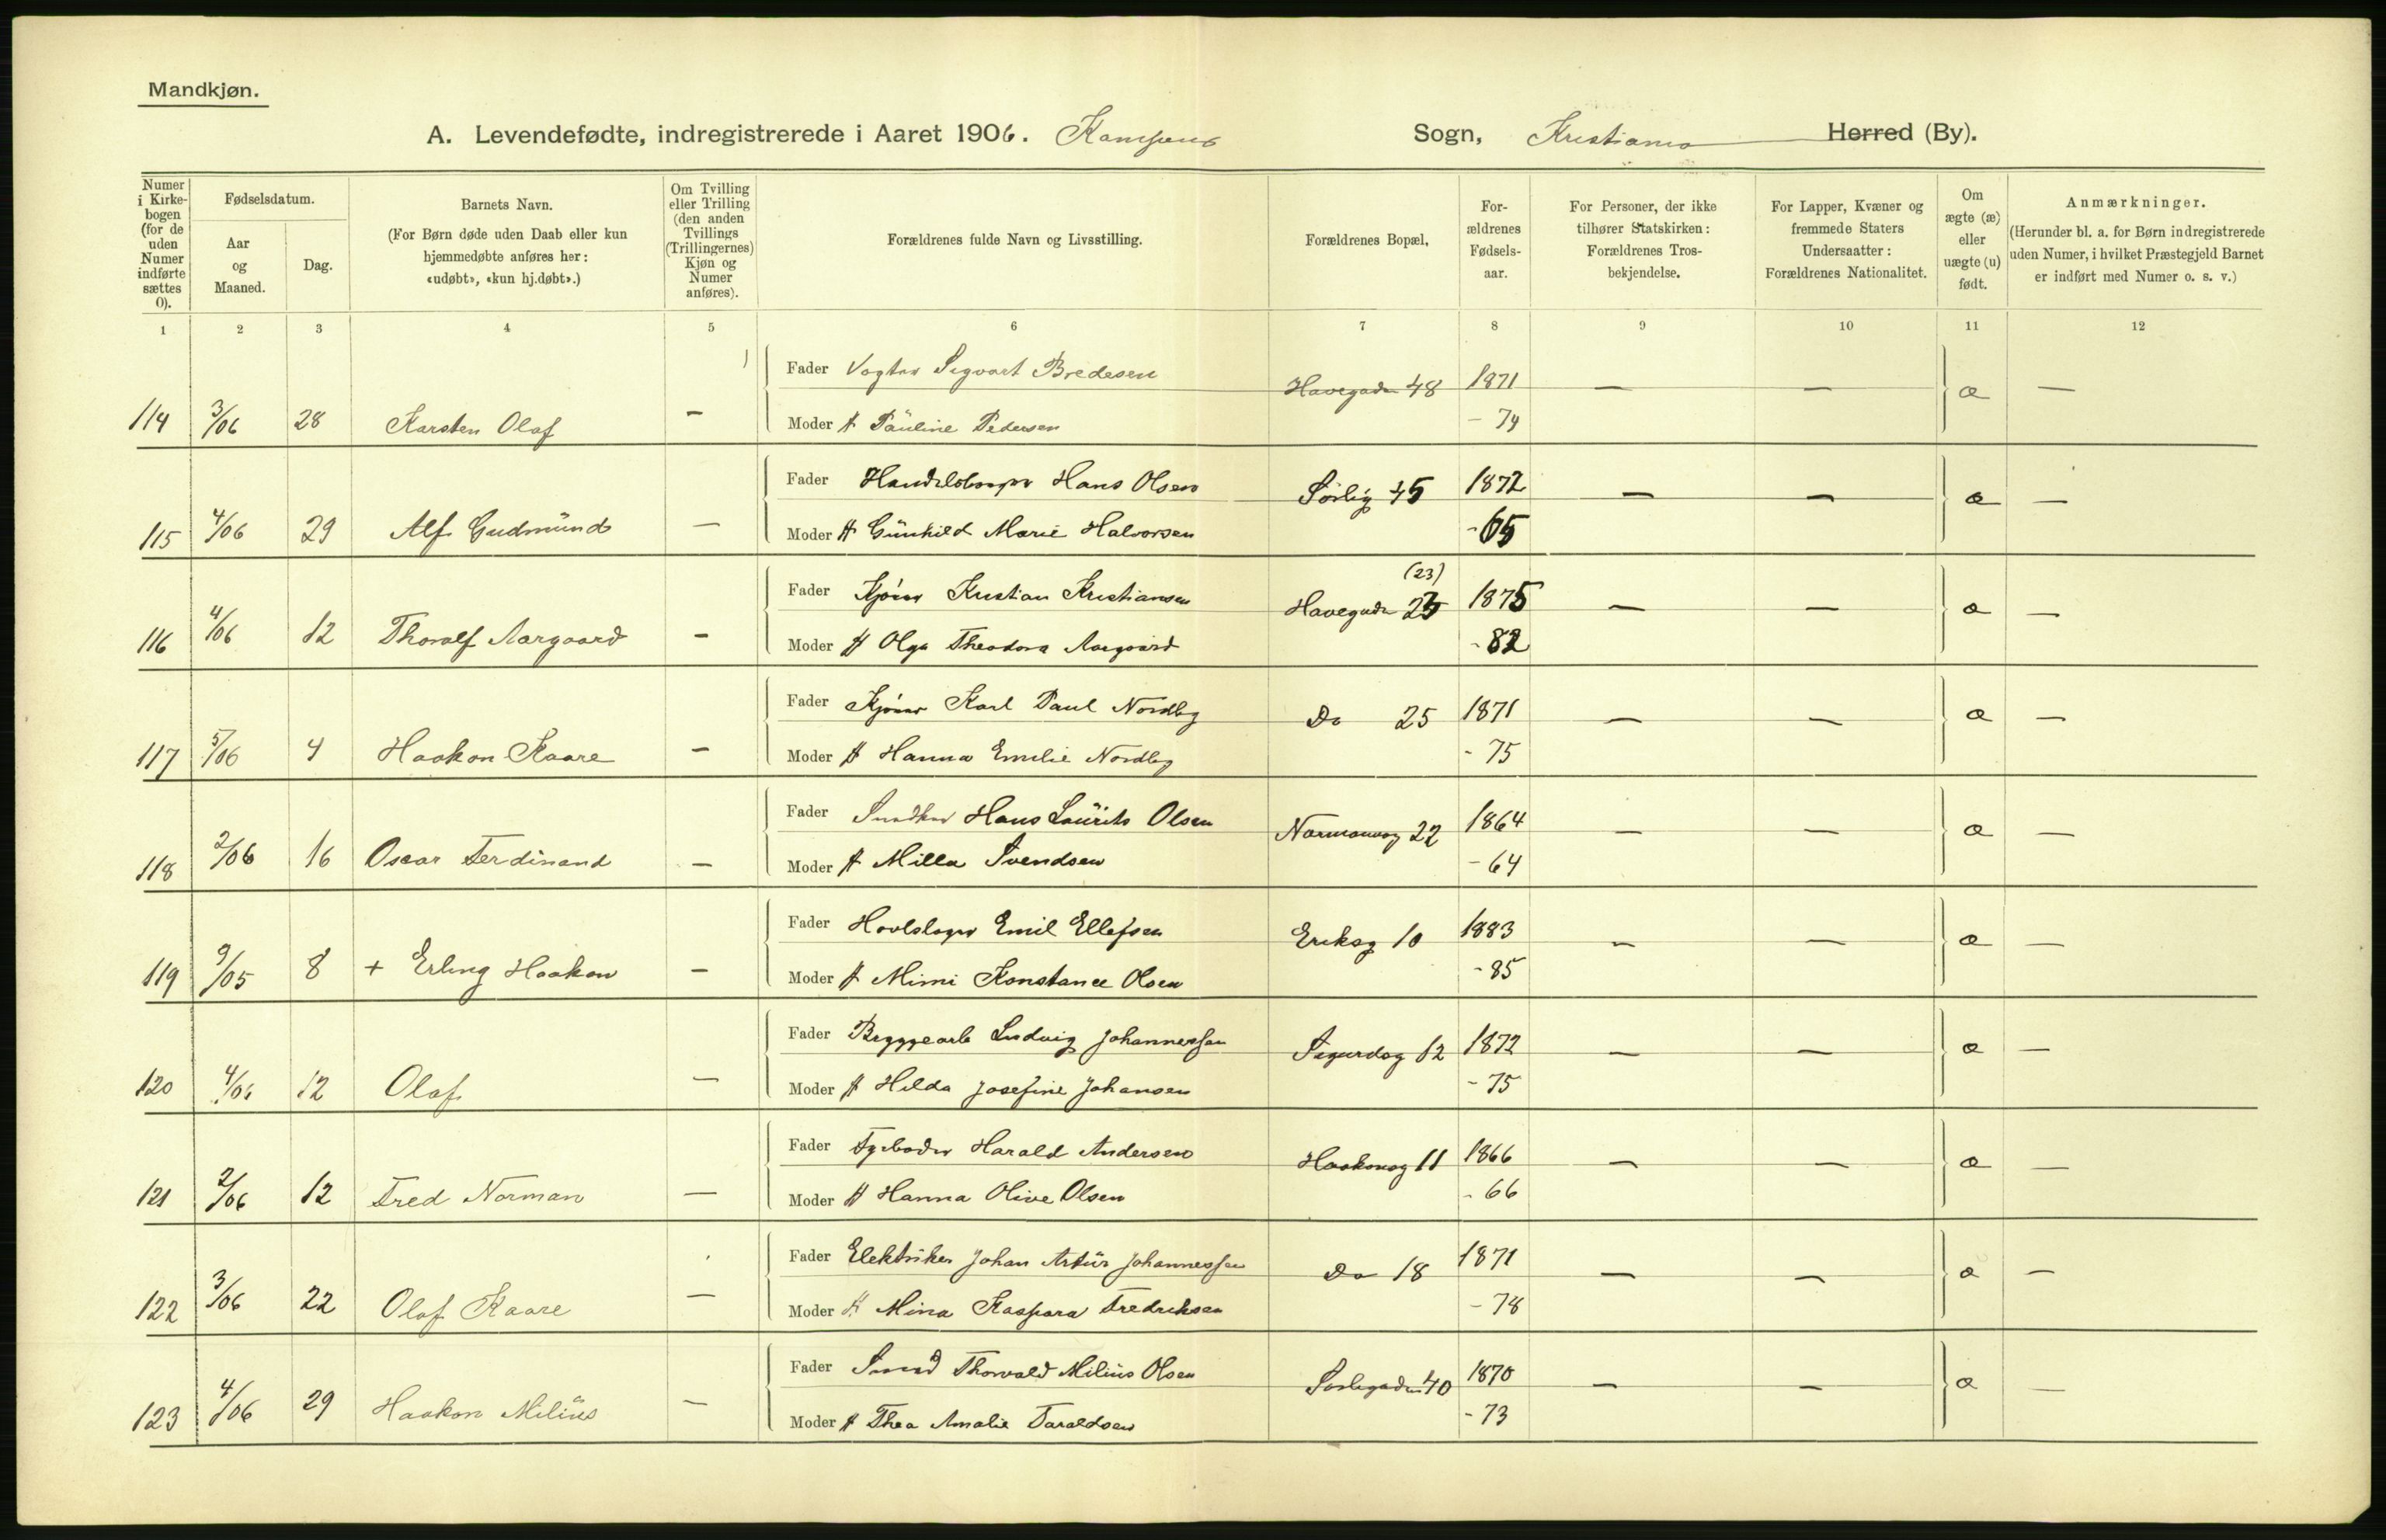 Mandkjøn.
A. Levendefødte, indregistrerede i Aaret 1906. Kampens Sogn, Kristiania Herred (By).
Numer i Kirkebogen (for de uden Numer indførte sættes 0).
Fødselsdatum.
Aar og Maaned.
Dag.
Barnets Navn.
(For Børn døde uden Daab eller kun hjemmedøbte anføres her: «udøbt», «kun hj.døbt».)
Om Tvilling eller Trilling (den anden Tvillings (Trillingernes) Kjøn og Numer anføres).
Forældrenes fulde Navn og Livsstilling.
Forældrenes Bopæl,
Forældrenes Fødselsaar.
For Personer, der ikke tilhører Statskirken: Forældrenes Trosbekjendelse.
For Lapper, Kvæner og fremmede Staters Undersaatter: Forældrenes Nationalitet.
Om ægte (æ) eller uægte (u) født.
Anmærkninger.
(Herunder bl. a. for Børn indregistrerede uden Numer, i hvilket Præstegjeld Barnet er indført med Numer o. s. v.)
1 2 3 4 5 6 7 8 9 10 11 12
Fader Vogter Sigvart Bredesen Havegaden 48 1871 — — æ —
114 3/06 28 Karsten Olaf — Moder H Pauline Pedersen - 74
Fader Hans Olsen Sørlig 45 1872 — — æ —
115 4/06 29 Alf Gudmund — Moder H Gunhild Marie Halvorsen - 65
(23)
Fader Kjører Kristian Kristiansen Havegaden 23 1875 — — æ —
116 4/06 12 Thoralf Aargaard — Moder H Olga Theodora Aargaard - 82
Fader Kjører Karl Paul Nordby Do 25 1871 — — æ —
117 5/06 4 Haakon Kaare — Moder H Hanna Emilie Nordby - 75
Fader Snedker Hans Laurits Olsen Normannsg 22 1864 — — æ —
118 2/06 16 Oscar Ferdinand — Moder H Milla Svendsen - 64
Fader Hovslager Emil Ellefsen Eriksg 10 1883 — — æ —
119 9/05 8 + Erling Haakon — Moder H Mimi Konstance Olsen - 85
Fader Bryggearb Ludvig Johannessen Sigurdsg 12 1872 — — æ —
120 4/06 12 Olaf — Moder H Hilda Josefine Johansen - 75
Fader Fyrbøder Harald Andersen Haakonsg 11 1866 — — æ —
121 2/06 12 Fred Norman — Moder H Hanna Olive Olsen - 66
Fader Elektriker Johan Artur Johannessen Do 18 1871 — — æ —
122 3/06 22 Olaf Kaare — Moder H Mina Kaspara Fredriksen - 78
Fader Smed Thorvald Milius Olsen Sørligaden 40 1870 — — æ —
123 4/06 29 Haakon Milius — Moder H Thea Amalie Taraldsen - 73